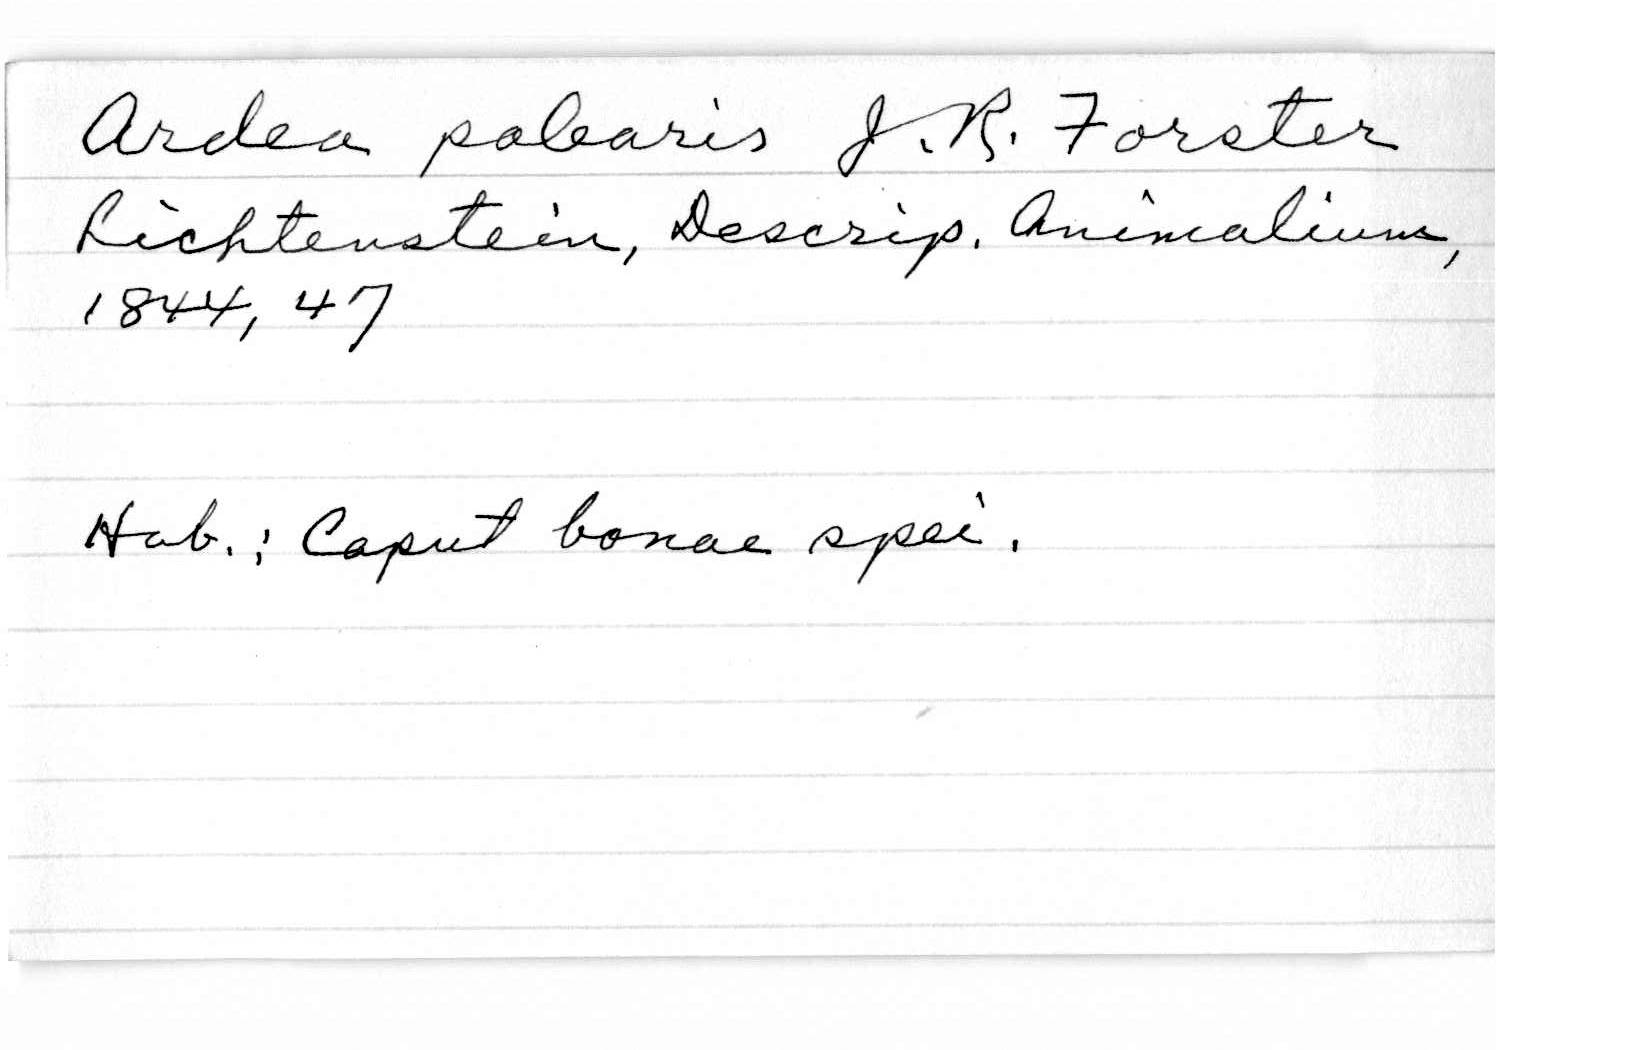 Ardea palearis J. R. Forster
Lichtenstein, Descrip. Animalium,
1844, 47
Hab.: Caput bonae spei.